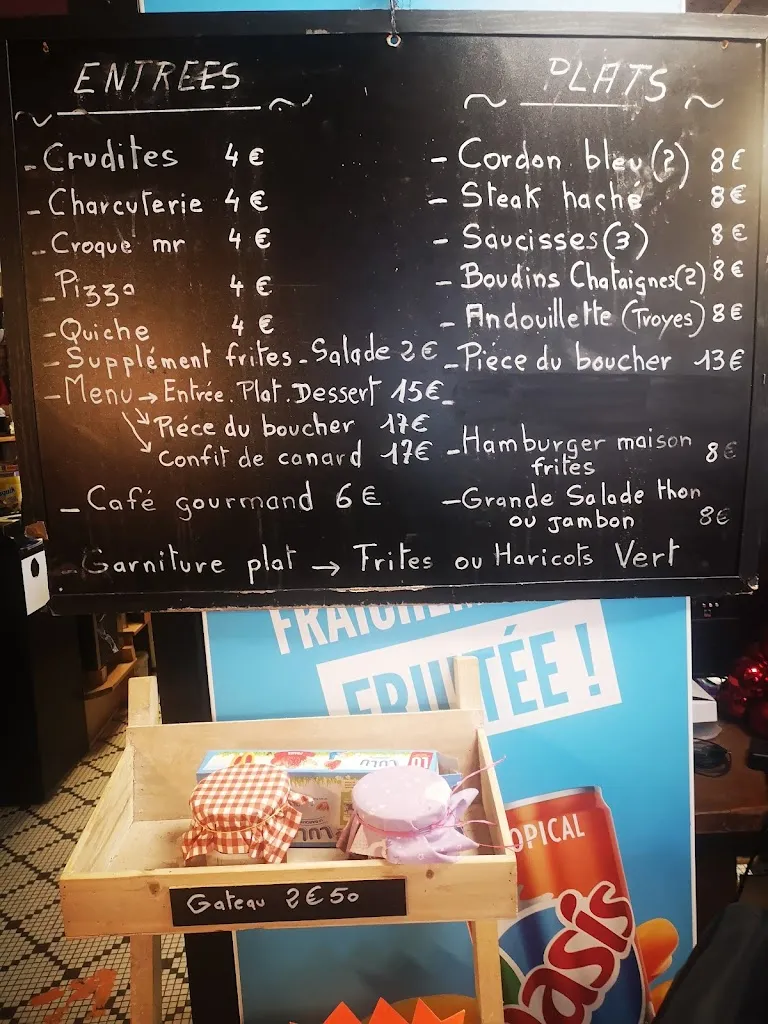 ENTREES
- Crudites 4 €
- Charcuterie 4 €
- Croque mr 4 €
- Pizza 4 €
- Quiche 4 €
- Supplément frites - Salade 2 €
- Menu → Entrée. Plat. Dessert 15 €
→ Piéce du boucher 17 €
→ Confit de canard 17 €
- Café gourmand 6 €
PLATS
- Cordon bleu (2) 8 €
- Steak haché 8 €
- Saucisses (3) 8 €
- Boudins Chataignes (2) 8 €
- Andouillette (Troyes) 8 €
- Piece du boucher 13 €
- Hamburger maison
frites 8 €
- Grande Salade thon
ou jambon 8 €
Garniture plat → Frites ou Haricots Vert
FRUITÉE !
LULU
LU
LULU
Gateau 2 € 50
TROPICAL
Oasis